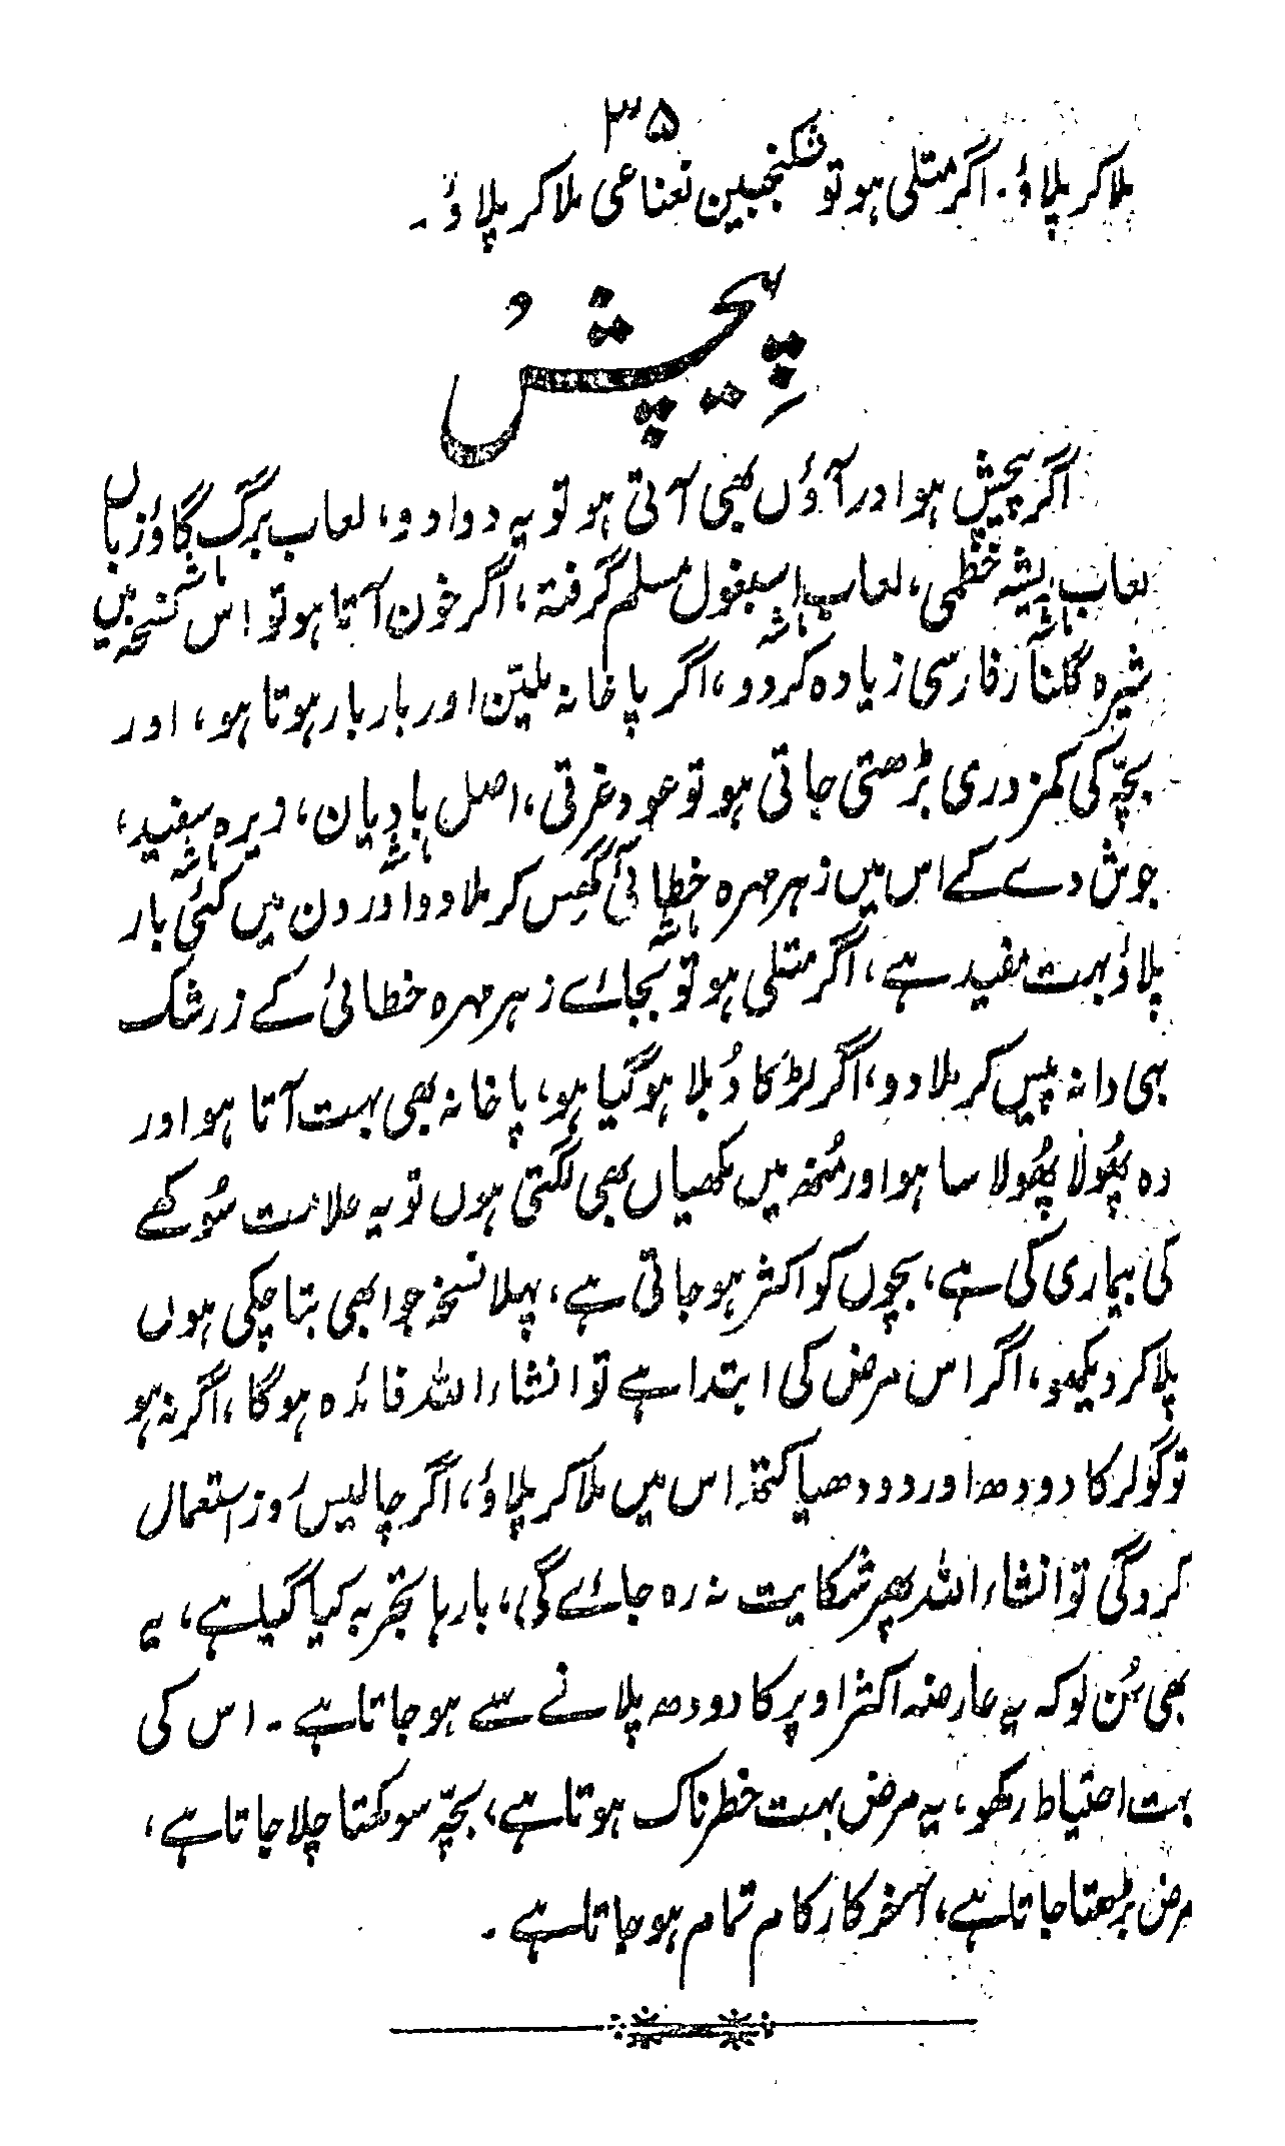 ۳۵
ملا کر پلاؤ۔ اگر متلی ہو تو سکنجبین نعناعی ملا کر پلاؤ۔
پیچش
اگر پیچش ہو اور آؤں بھی آتی ہو تو یہ دوا دو، لعاب برگ گاؤزباں
لعاب ریشہ خطمی، لعاب اسبغول مسلم گرفتہ، اگر خون آتا ہو تو اس نسخہ میں
شیرہ گلنار فارسی زیادہ کردو، اگر پاخانہ ملیّن اور بار بار ہوتا ہو، اور
بچّہ کی کمزوری بڑھتی جاتی ہو تو عود غرقی، اصل بادیان، زیرہ سفید،
جوش دے کے اس میں زہر مہرہ خطائی گھِس کر ملا دو اور دن میں کئی بار
پلاؤ بہت مفید ہے، اگر متلی ہو تو بجائے زہر مہرہ خطائی کے زرشک
بہی دانہ پیس کر ملا دو، اگر لڑکا دُبلا ہوگیا ہو، پاخانہ بھی بہت آتا ہو اور
وہ پھُولا پھُولا سا ہو اور مُنھ میں مکھیاں بھی لگتی ہوں تو یہ علامت سُوکھے
کی بیماری کی ہے، بچوں کو اکثر ہو جاتی ہے، پہلا نسخہ جو ابھی بتا چکی ہوں
پلا کر دیکھو، اگر اس مرض کی ابتدا ہے تو انشاء اللہ فائدہ ہوگا، اگر نہ ہو
تو گولر کا دودھ اور دودھیا کتھّہ اس میں ملا کر پلاؤ، اگر چالیس روز استعمال
کروگی تو انشاء اللہ پھر شکایت نہ رہ جائے گی، بارہا تجربہ کیا گیا ہے، یہ
بھی سُن لو کہ یہ عارضہ اکثر اوپر کا دودھ پلانے سے ہو جاتا ہے۔ اس کی
بہت احتیاط رکھو، یہ مرض بہت خطرناک ہوتا ہے، بچّہ سوکھتا چلا جاتا ہے،
مرض بڑھتا جاتا ہے، آخر کار کام تمام ہو جاتا ہے۔